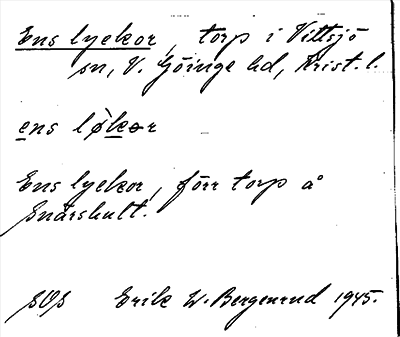 Ens lyckor, torp i Vittsjö
sn, V. Göinge hd, Krist. l.
ens lø̀kər
Ens lyckor, förr torp å
Snärshult.
SOS Erik W. Bergenrud 1945.